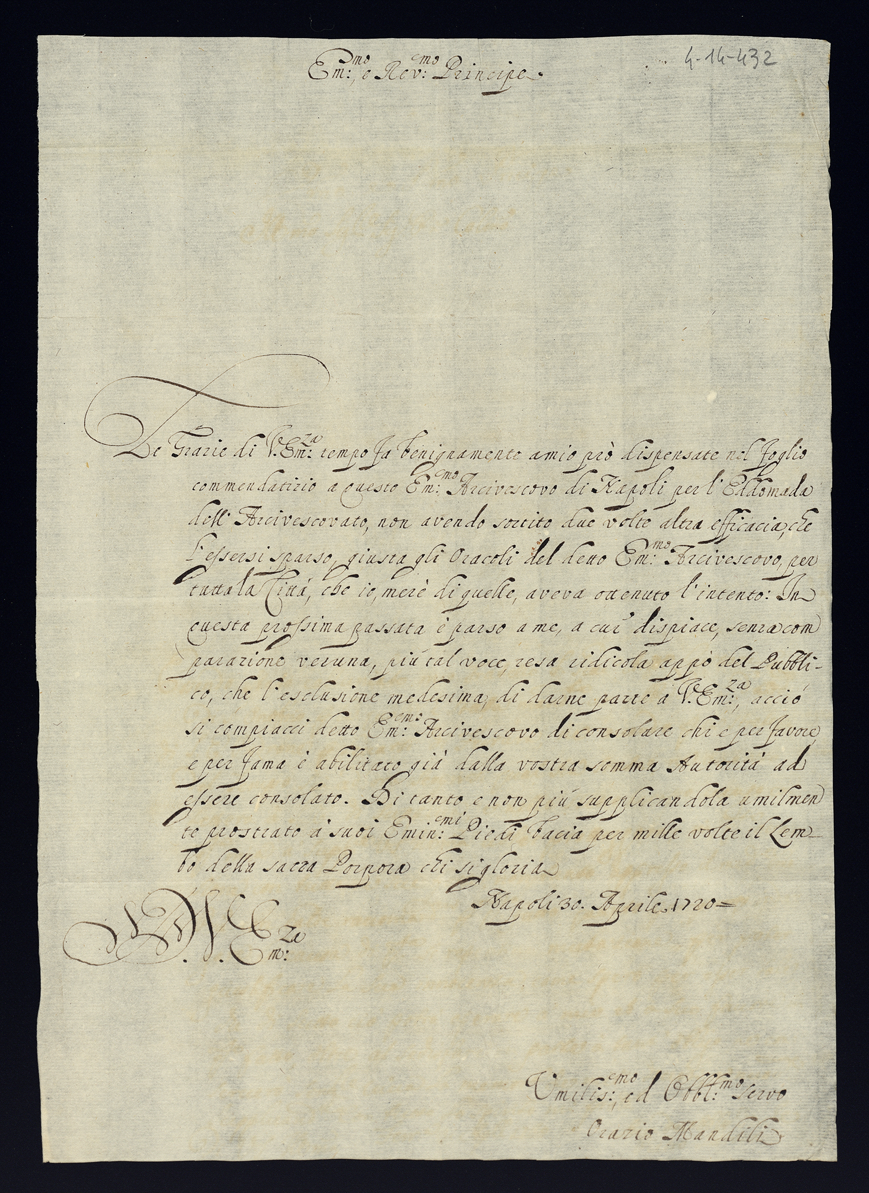 4-14-432
Em:mo e Rev:mo Principe
Le Grazie di V. Em:za tempo fa benignamente amio prò dispensate nel foglio
commendatizio a questo Em:mo Arcivescovo di Napoli per l'Eddomada
dell'Arcivescovato, non avendo sortito due volte altra efficacia, che
l'essersi sparso, giusta gli Oracoli del detto Em:mo Arcivescovo, per
tutta la Città, che io, mercè di quelle, aveva ottenuto l'intento: In
questa prossima passata è parso a me, a cui dispiace, senza com
parazione veruna, più tal voce, resa ridicola appò del Pubbli-
co, che l'esclusione medesima, di darne parte a V. Em:za, acciò
si compiacci detto Em:mo Arcivescovo di consolare chi e per favore,
e per fama è abilitato già dalla vostra somma Autorità ad
essere consolato. Di tanto e non più supplicandola umilmen
te prostrato a' suoi Emin:mi Piedi bacia per mille volte il Lem-
bo della sacra Porpora chi si gloria
Napoli 30. Aprile 1720=
D. V. Em:za
Umilis:mo, ed Obbl:mo Servo
Orazio Mandili